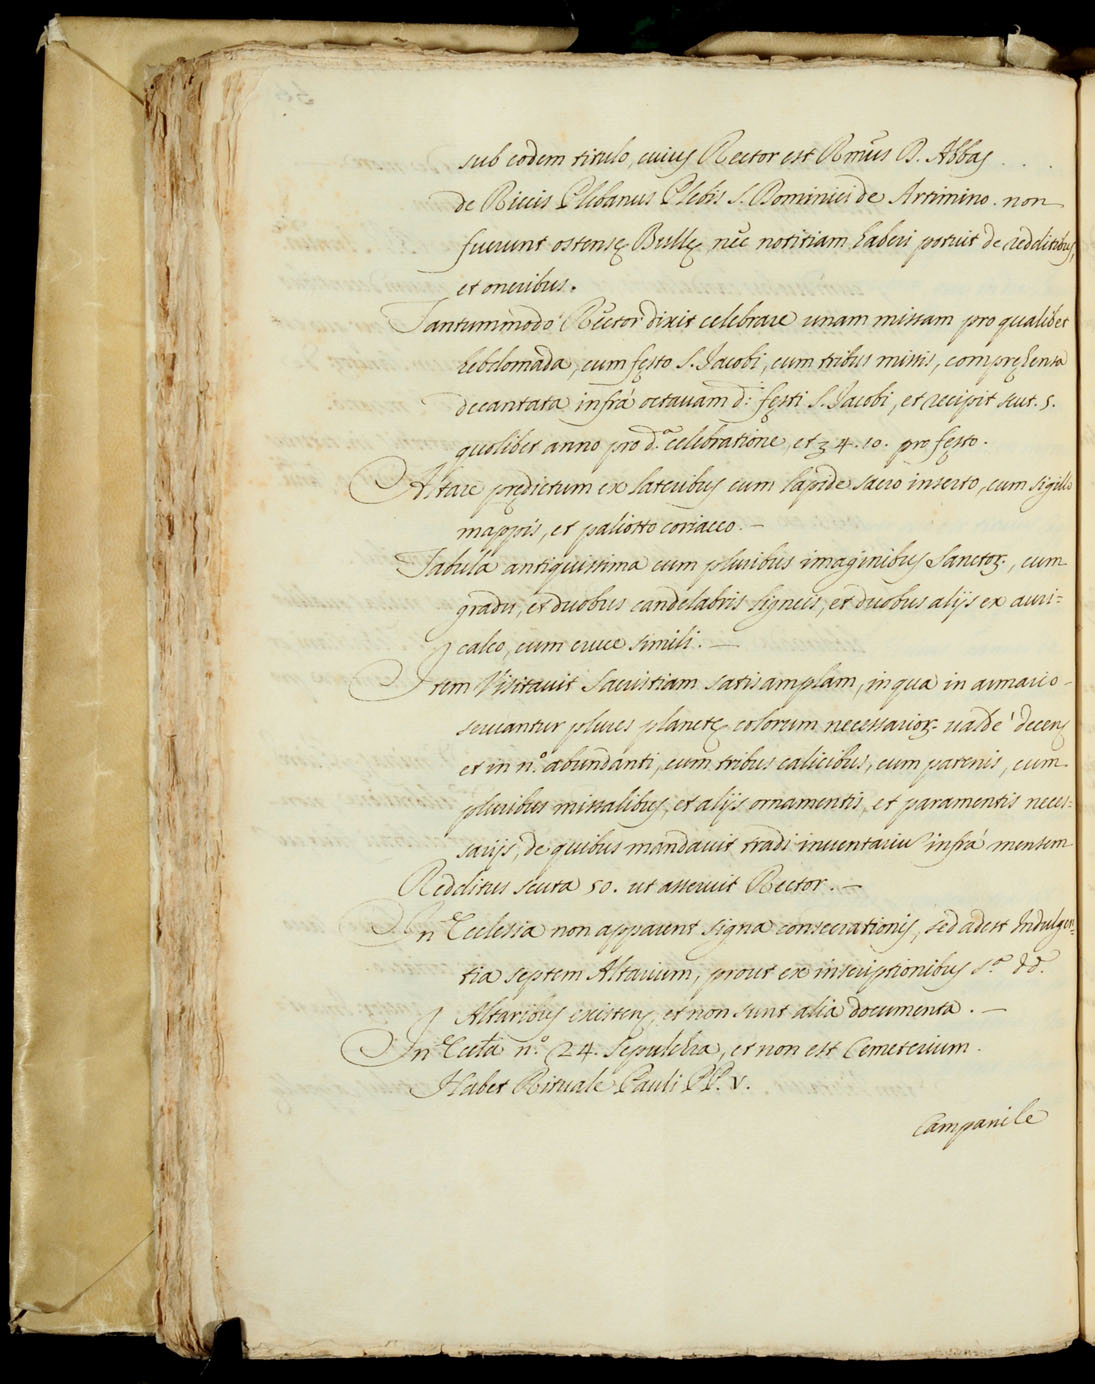 sub eodem titulo, cuius Rector est Rm̃us D. Abbas . . .
de Riccis Plebanus Plebis S. Dominici de Artimino. non
fuerunt ostensę Bullę, nec notitiam haberi potuit de redditibus,
et oneribus.
Tantummodo Rector dixit celebrare unam missam pro qualibet
hebdomada, cum festo S. Jacobi, cum tribus missis, compręhensa
decantata infrà octavam d.i festi S. Jacobi, et recipit scut. 5.
quolibet anno pro d.a celebratione, et ʒ 4. 10. pro festo.
Altare prędictum ex lateribus cum lapide sacro inserto, cum sigillo
mappis, et paliotto coriaceo. —
Tabula antiquissima cum pluribus imaginibus Sanctoꝝ., cum
gradu, et duobus candelabris ligneis, et duobus alijs ex auri=
calco, cum cruce simili. —
Item Visitavit Sacristiam satis amplam, in qua in armario -
servantur plures planetę colorum necessarioꝝ. valdè decens
et in n.o abundanti, cum tribus calicibus, cum patenis, cum
pluribus missalibus, et alijs ornamentis, et paramentis neces=
sarijs, de quibus mandavit tradi inventariũ infrà mensem
Redditus scuta 50. ut asseruit Rector. —
In Ecclesia non apparent signa consecrationis, sed adest Indulgen=
tia septem Altarium, prout ex inscriptionibus s.a dd.
Altaribus existens, et non sunt alia documenta. —
In Eccl̃a n.o 24. Sepulchra, et non est Cemeterium.
Habet Rituale Pauli PP. V.
Campanile